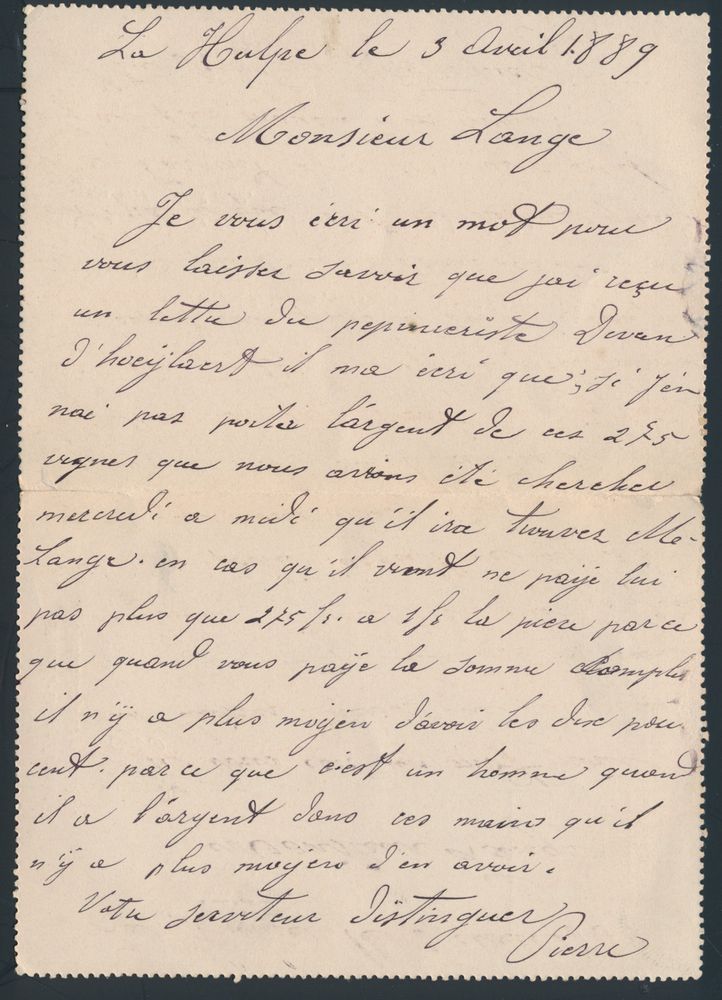 La Hulpe le 3 Avril 1.889
Monsieur Lange
Je vous écri un mot pour
vous laisser savoir que jai reçu
un lettre du pepinieriste Devan
d'hoeijlaert il ma écri que, si jén
nai pas porté l'árgent de ces 275
vignes que nous avions été chercher
mercredi a midi qu'il ira trouvez Mr
Lange. en cas qu'il vient ne paije lui
pas plus que 275 frs. a 1 fr la piere parce
que quand vous païje la somme complu
il n'ÿ a plus moijen d'avoir les dix pou
cent. parce que c'est un homme quand
il a l'árgent dans ces mains qu'il
n'ÿ a plus moijen d'en avoir.
Votre serviteur distinguer
Pierre